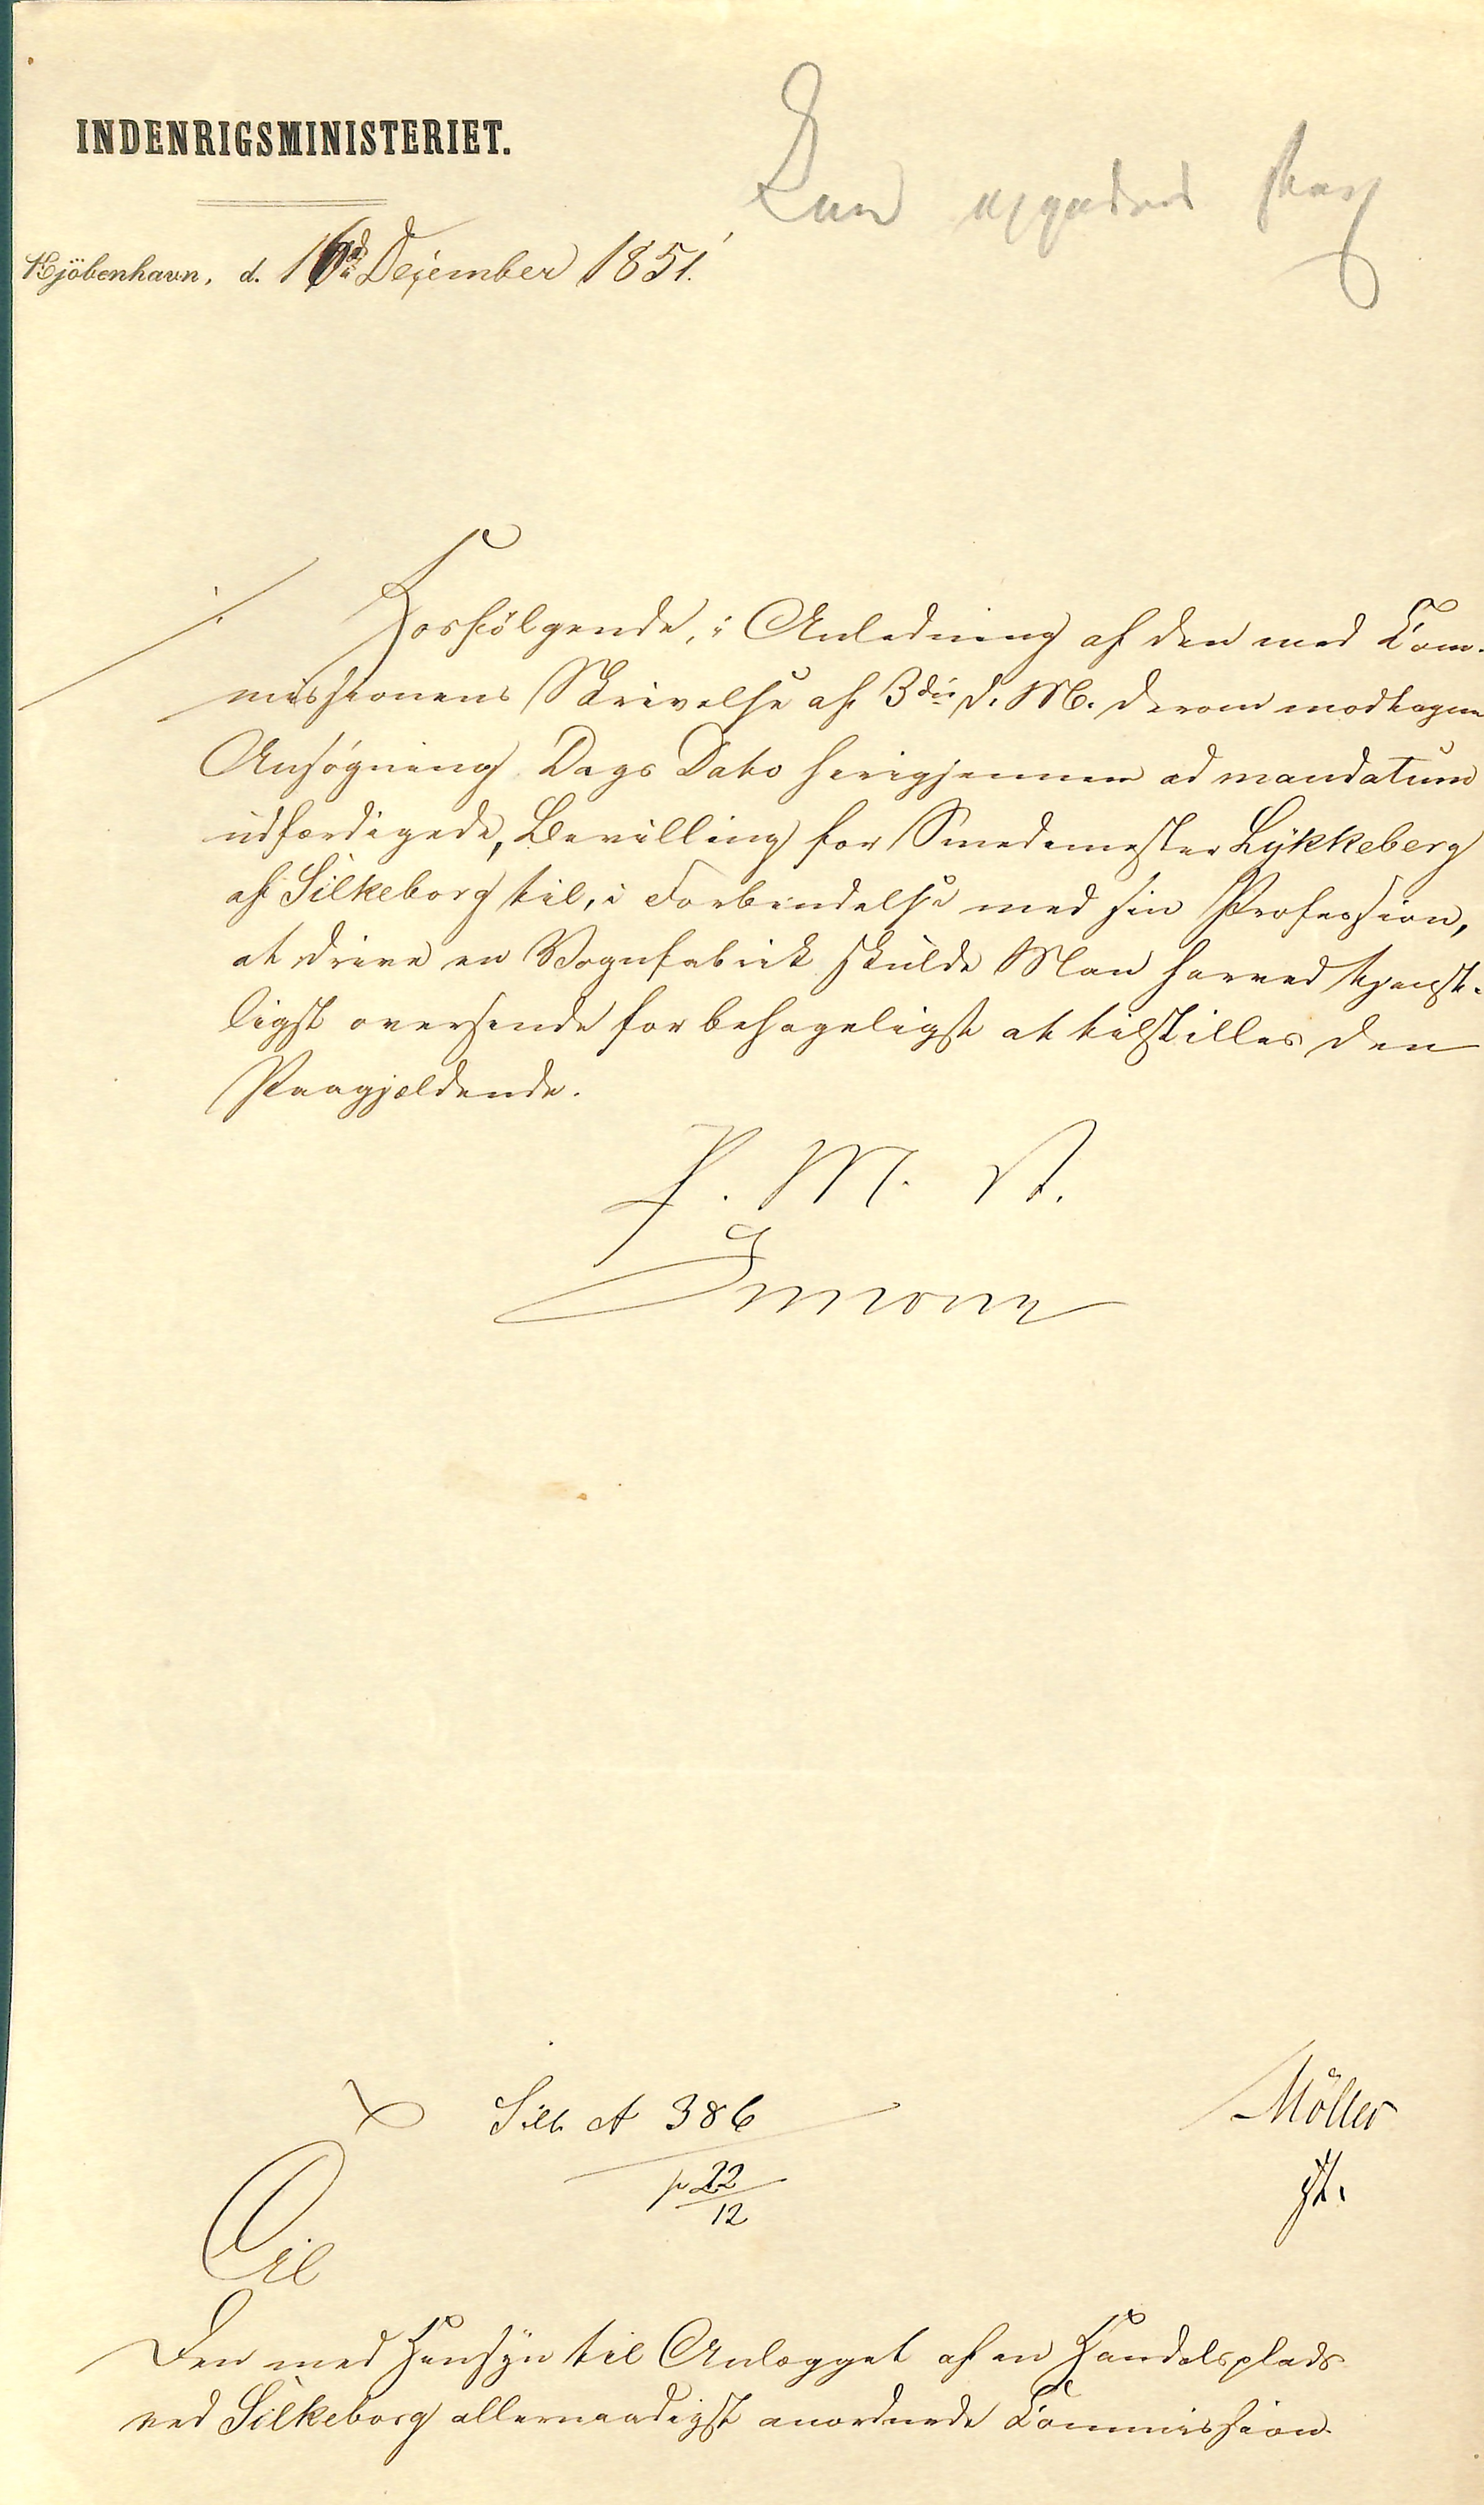 INDENRIGSMINISTERIET.
Kjöbenhavn, d. 16de December 1851.
Hosfölgende, i Anledning af den med Com-
missionens Skrivelse af 3die d. M. derom modtagne
Ansøgning Dags Dato herigjennem ad mandatum
udfærdigede, Bevilling for Smedemester Lykkeberg
af Silkeborg til, i Forbindelse med sin Profession,
at drive en Vognfabrik skulde Man herved tjenst-
ligst oversende for behageligst at tilstilles den
Paagjældende.
P. M. V.
Simony
Silb A 386
Möller
p 22/12
Til
Den med Hensyn til Anlægget af en Handelsplads
ved Silkeborg allernaadigst anordnede Commission.